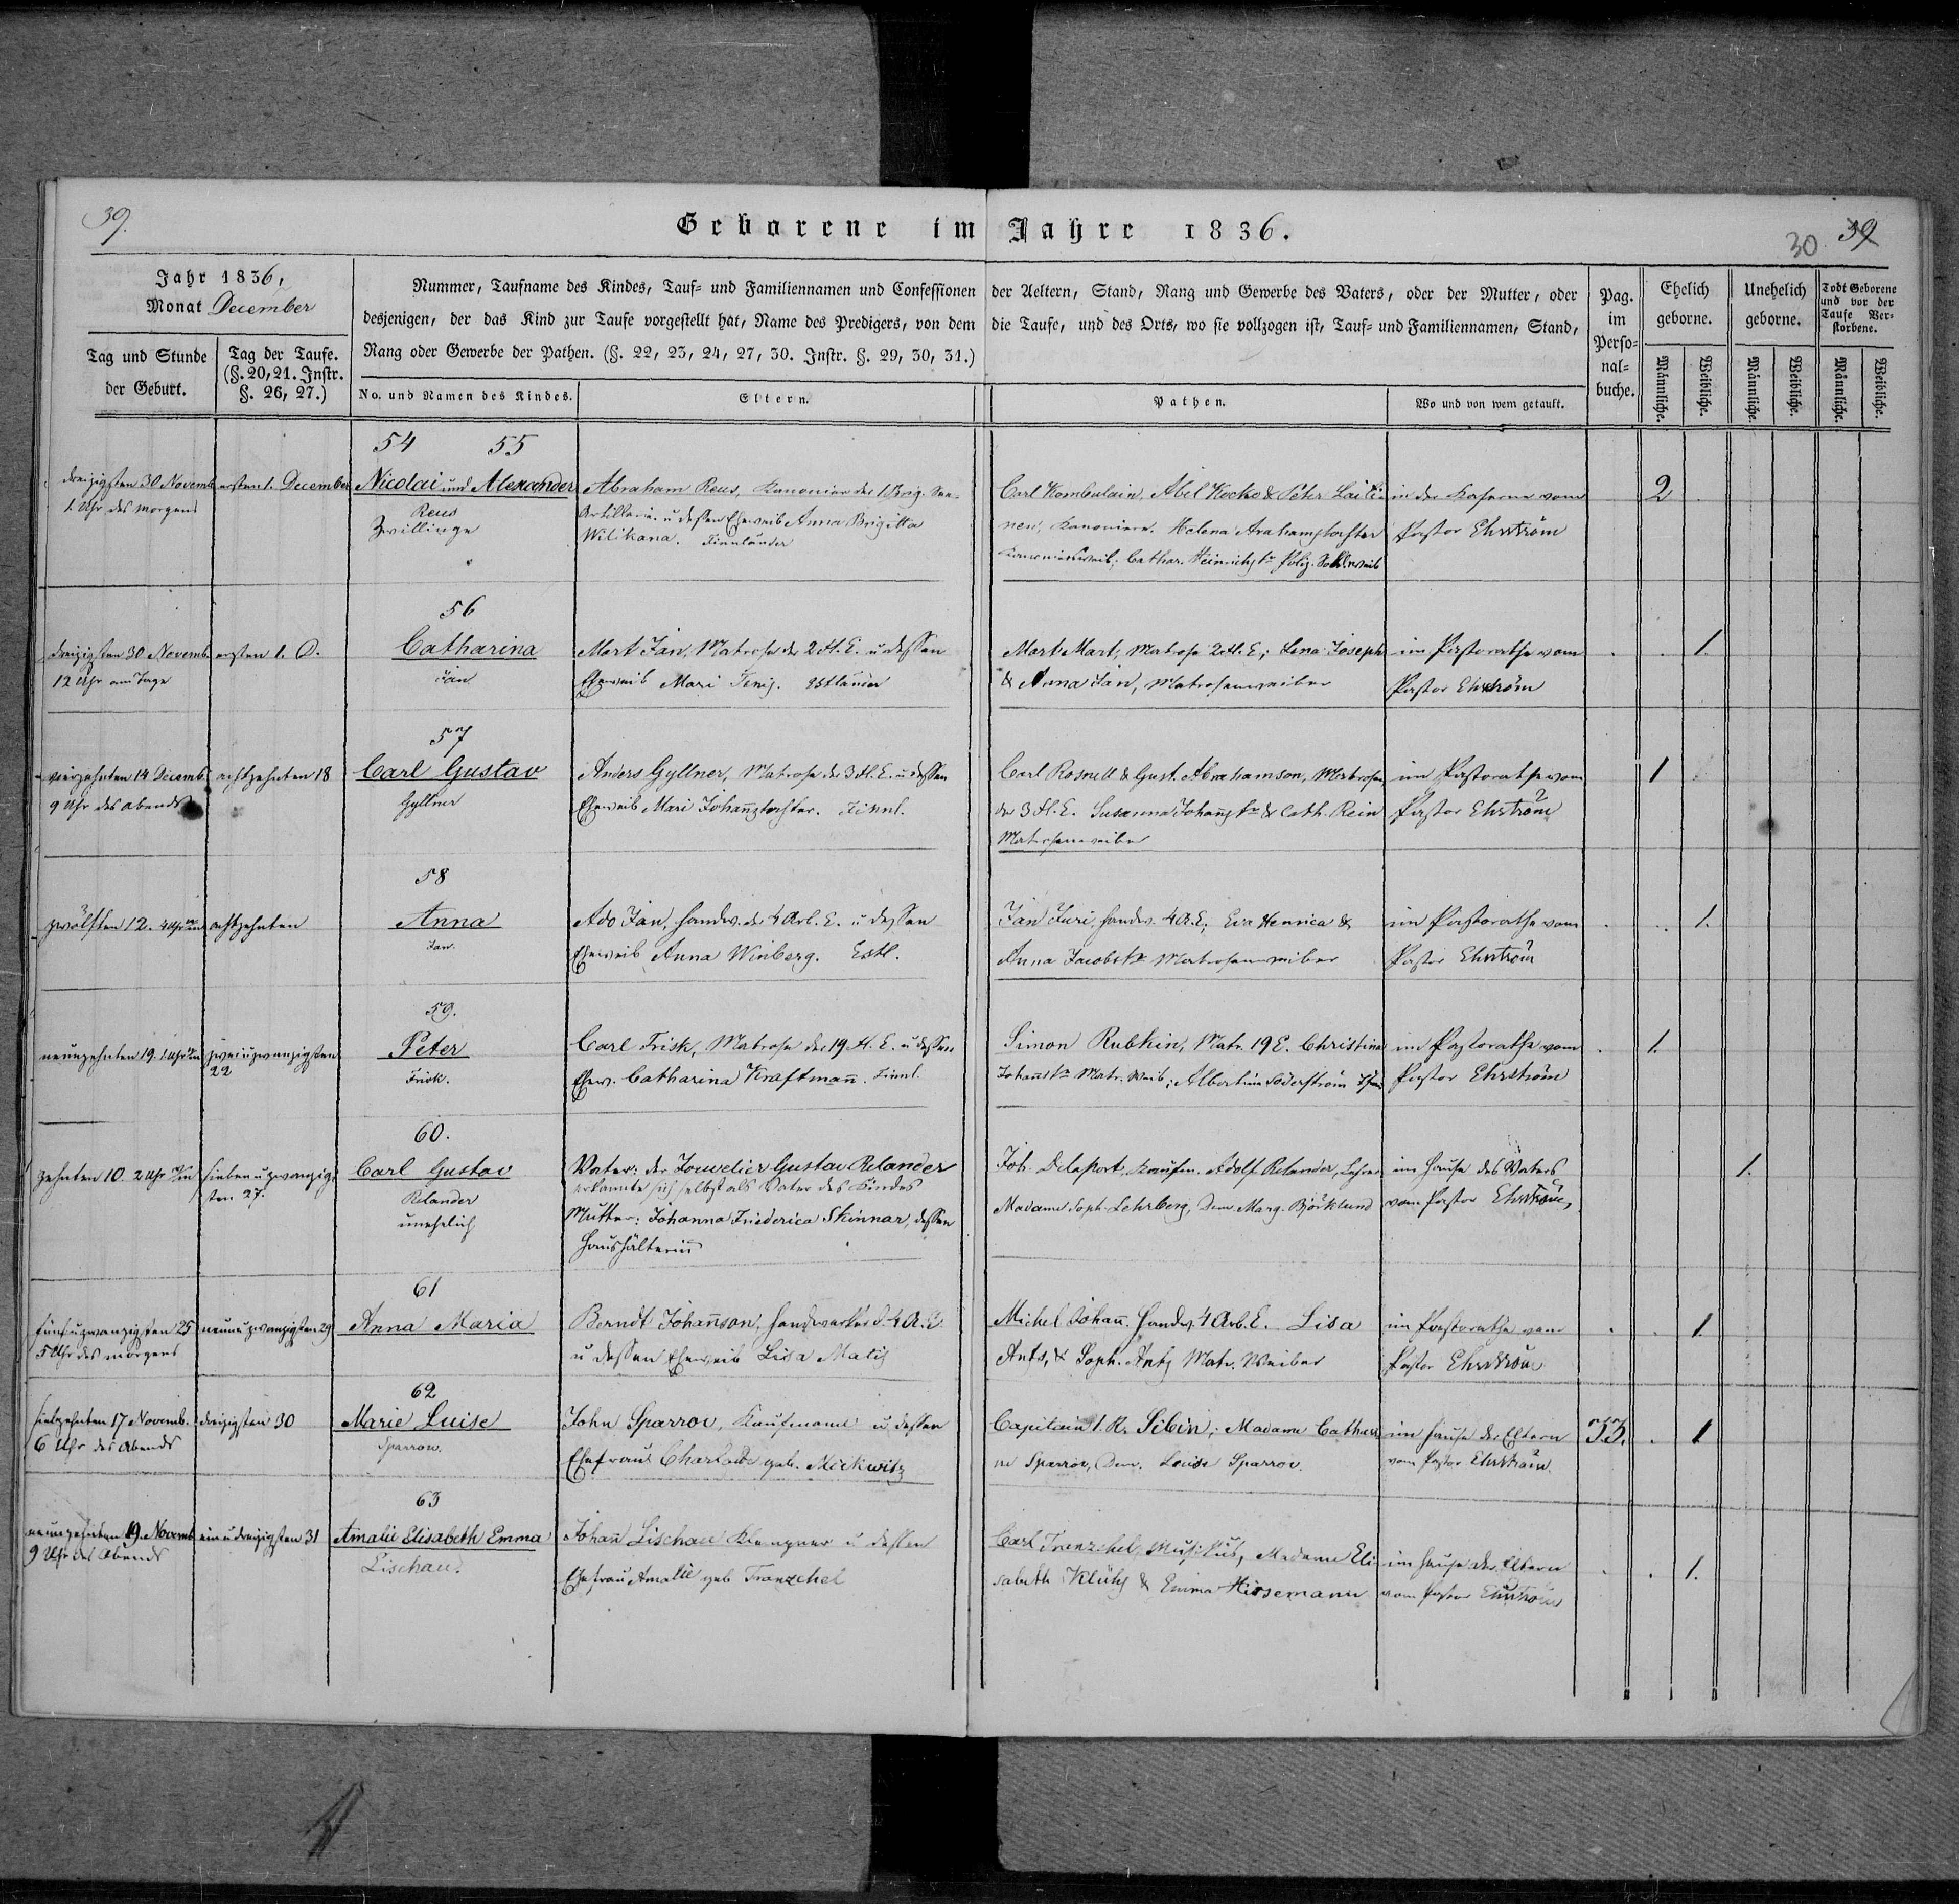 39.
Geborene im Jahre 1836.
30 39
Jahr 1836,
Monat December
Tag und Stunde
der Geburt.
Tag der Taufe.
(§. 20, 21. Instr.
§. 26, 27.)
Nummer, Taufname des Kindes, Tauf- und Familiennamen und Confessionen der Aeltern, Stand, Rang und Gewerbe des Vaters, oder der Mutter, oder
desjenigen, der das Kind zur Taufe vorgestellt hat, Name des Predigers, von dem die Taufe, und des Orts, wo sie vollzogen ist, Tauf- und Familiennamen, Stand,
Rang oder Gewerbe der Pathen. (§. 22, 23, 24, 27, 30. Instr. §. 29, 30, 31.)
No. und Namen des Kindes.
Eltern.
Pathen.
Wo und von wem getauft.
Pag.
im
Perso-
nal-
buche.
Ehelich
geborne.
Unehelich
geborne.
Todt Geborene
und vor der
Taufe Ver-
storbene.
Männliche.
Weibliche.
Männliche.
Weibliche.
Männliche.
Weibliche.
dreizigsten 30 Novemb.
1. Uhr des Morgens
ersten 1. December
54 55
Nicolai und Alexander
Reus
Zwillinge
Abraham Reus, Kanonier der 1 Brig. See-
Artillerie. u dessen Eheweib Anna Brigitta
Wilikana. Finnländer
Carl Kombulain, Abel Kocko & Peter Laiti-
nen, Kanoniere. Helena Abrahamstochter
Kanoniersweib, Cathar. Heinrichs tr Poliz. Sold. weib
in der Kaserne vom
Pastor Ehrström
2
dreizigsten 30 Novemb.
12 Uhr am Tage
ersten 1. D.
56
Catharina
Jan
Mart Jan, Matrose der 2 Fl. E. u dessen
Eheweib Mari Tenis. Estländer
Mart Mart, Matrose 2 Fl. E; Lena Joseph
& Anna Jan, Matrosenweiber
im Pastorathe vom
Pastor Ehrström
1.
vierzehnten 14 Decemb.
9 Uhr des Abends
achtzehnten 18
57
Carl Gustav
Gyllner
Anders Gyllner, Matrose der 3 Fl. E. u dessen
Eheweib Mari Johannstochter. Finnl.
Carl Rosnell & Gust. Abrahamson, Matrosen
der 3 Fl. E. Susanna Johanns tr & Cath. Rein
Matrosenweiber
im Pastorathe vom
Pastor Ehrström
1
zwölften 12. 4 Uhr
achtzehnten
58
Anna
Jan.
Ado Jan, Handw. der 4 Arb. E. u dessen
Eheweib Anna Winberg. Estl.
Jan Juri, Handw. 4 A. E; Eva Henrica &
Anna Jacobs tr Matrosenweiber
im Pastorathe vom
Pastor Ehrström
1.
neunzehnten 19. 1 Uhr
zweiuzwanzigsten
22
59.
Peter
Frisk.
Carl Frisk, Matrose der 19 Fl. E. u dessen
Ehew. Catharina Kraftmann. Finnl.
Simon Rubkin, Matr. 19 E. Christina
Johanns tr Matr. Weib; Albertina Söderström
im Pastorathe vom
Pastor Ehrström
1.
zehnten 10. 2 Uhr
siebenuzwanzig-
sten 27.
60.
Carl Gustav
Relander
unehelich
Vater: der Jouwelier Gustav Relander
erkannte sich selbst als Vater des Kindes
Mutter: Johanna Friederica Skinnar, dessen
Haushälterin
Joh. Delaport, Kaufm. Adolf Relander, Lehrer
Madame Soph. Lehrberg, Dem. Marg. Björklund
im Hause des Vaters
vom Pastor Ehrström
1.
fünfuzwanzigsten 25
5 Uhr des Morgens
neunuzwanzigsten 29
61
Anna Maria
Berndt Johannson, Handwerker d. 4 A. E
u dessen Eheweib Lisa Matis
Michel Johann. Handw. 4 Arb. E. Lisa
Ants, & Soph. Ants Matr. Weiber
im Pastorathe vom
Pastor Ehrström
1
siebzehnten 17 Novemb.
6 Uhr des Abends
dreizigsten 30
62
Marie Luise
Sparrow.
John Sparrov, Kaufmann u dessen
Ehefrau Charlotte geb. Mickwitz
Capitain 1. R. Sibin; Madame Cathari-
ne Sparrov, Dem. Louise Sparrov.
im Hause der Eltern
vom Pastor Ehrström.
53.
1
neunzehnten 19. Novemb
9 Uhr des Abends
einudreizigsten 31
63
Amalie Elisabeth Emma
Lischau.
Johann Lischau Klempner u dessen
Ehefrau Amalie geb Franzchel
Carl Franzchel, Musikus, Madame Eli-
sabeth Klühs & Emma Hirsemann
im Hause der Eltern
vom Pastor Ehrström
1.